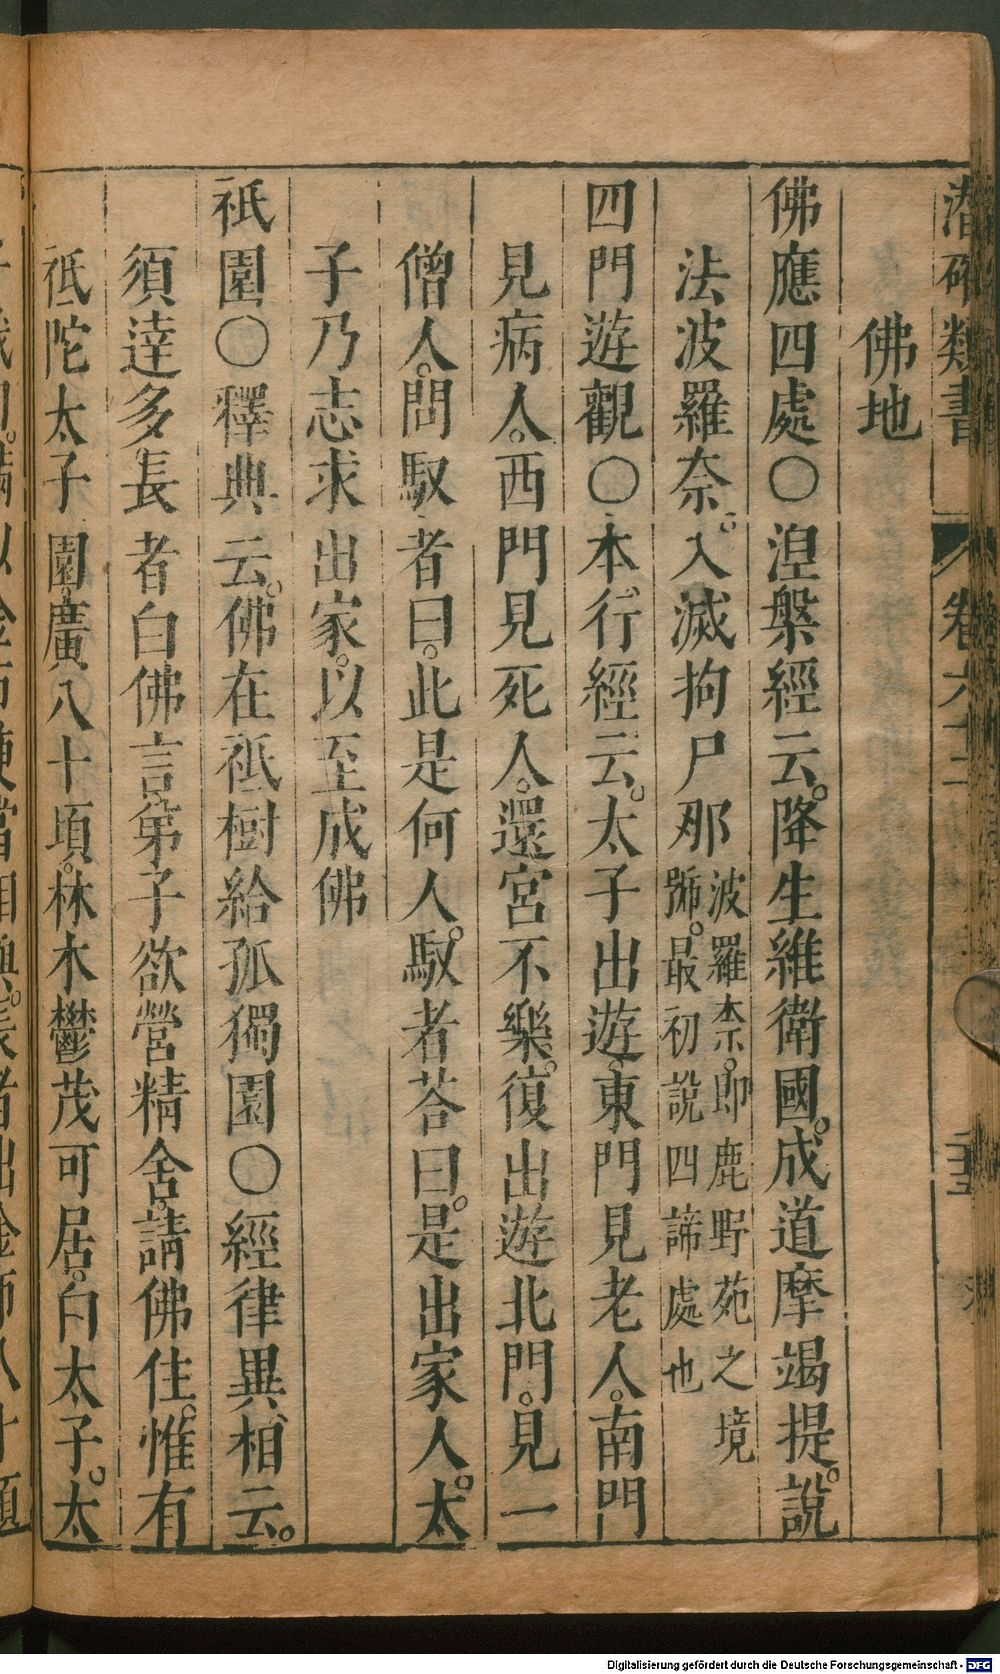 潛確類書
卷六十二
佛地
佛應四處〇涅槃經云。降生維衛國。成道摩竭提。說
法波羅奈。入滅拘尸那波羅柰。即鹿野苑之境
號。最初說四諦處也
四門遊觀〇本行經云。太子出遊。東門見老人。南門
見病人。西門見死人。還宮不樂。復出遊北門。見一
僧人。問馭者曰。此是何人。馭者荅曰。是出家人。太
子乃志求出家。以至成佛
祇園〇釋典云。佛在祇樹給孤獨園〇經律異相云。
須達多長者白佛言。第子欲營精舍。請佛住。惟有
祗陀太子園。廣八十頃。林木鬱茂可居。白太子。太
Digitalisierung gefördert durch die Deutsche Forschungsgemeinschaft - DFG